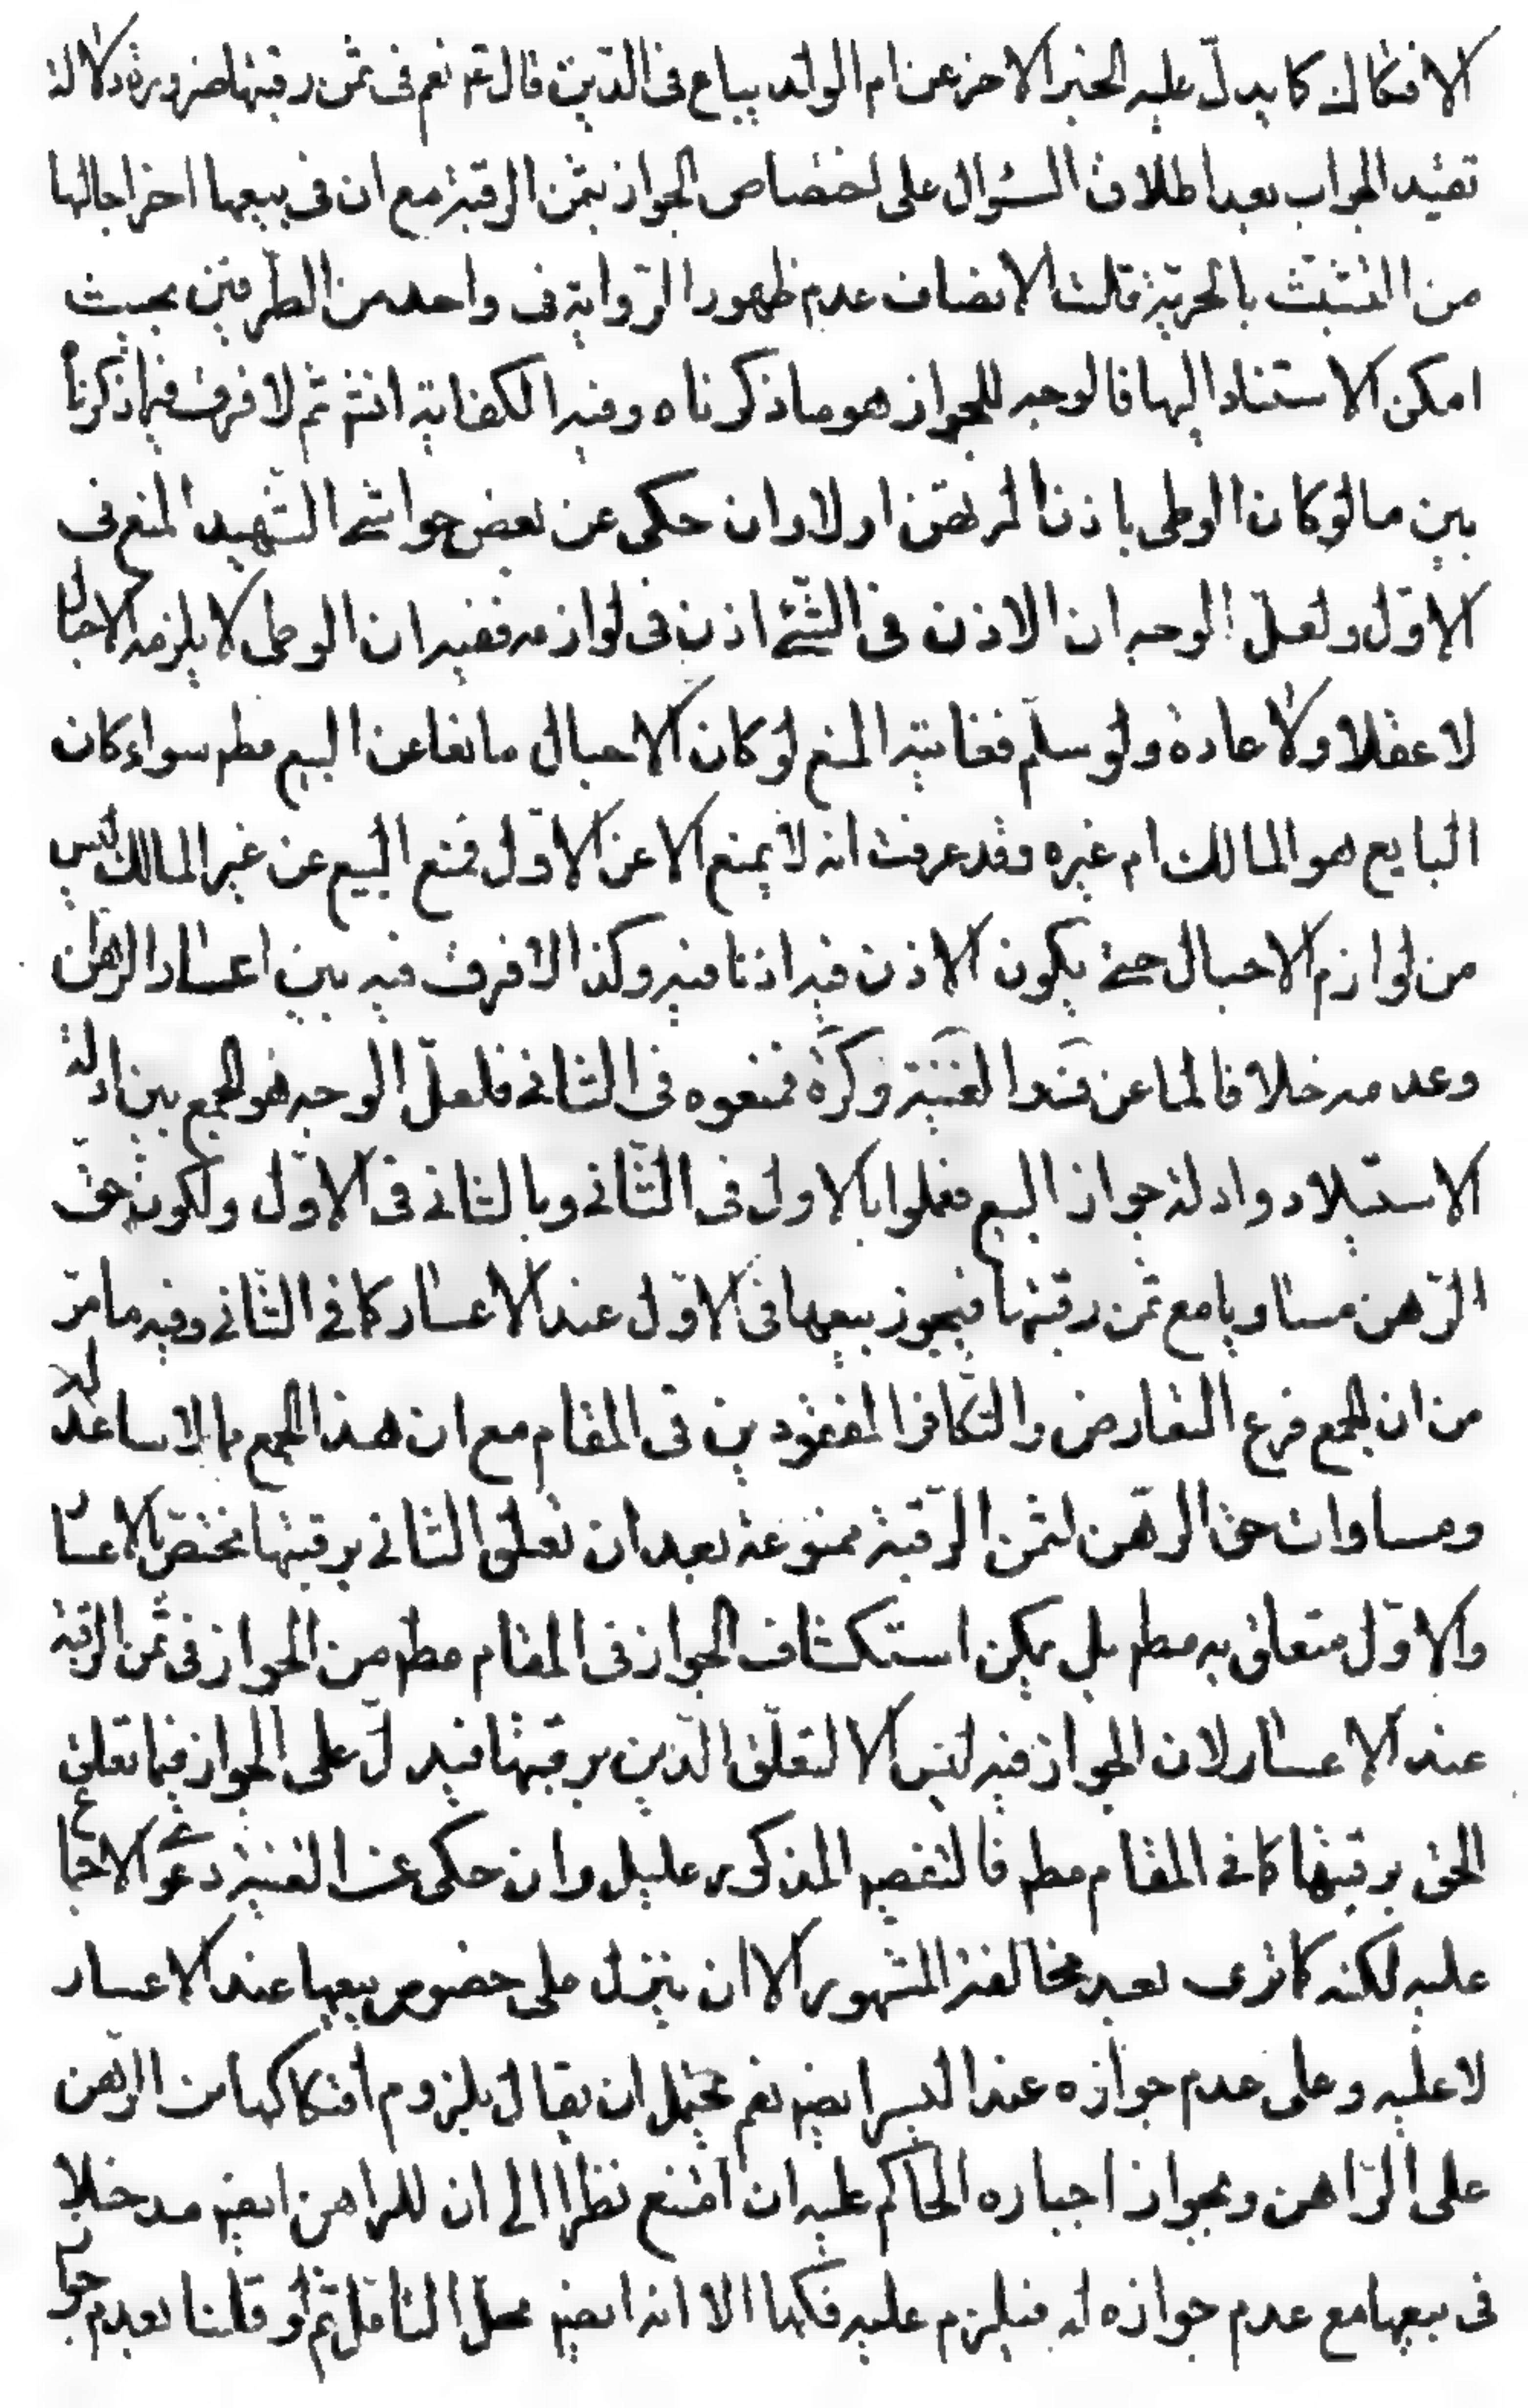 الافتكاك كما يدلّ عليه الخبر الاخر عن ام الولد يباع فى الدّين قال عم نعم فى ثمن رقبتها ضرورة دلالة
تقييد الجواب بعد اطلاق السّؤال على اختصاص الجواز بثمن الرقبة مع ان فى بيعها اخراجا لها
من التشبّث بالحريّة قلت الانصاف عدم ظهور الرّواية فى واحد من الطّرفين بحيث
امكن الاستناد اليها فالوجه للجواز هو ما ذكرناه وفيه الكفاية انتهى ثم لا فرق فيما ذكرنا
بين ما لو كان الوطى باذن المرتهن اولا وان حكى عن بعض حواشى الشّهيد المنع فى
الاوّل ولعلّ الوجه ان الاذن فى الشّئ اذن فى لوازمه ففيه ان الوطى لا يلزمه الاحبال
لا عقلا ولا عادة ولو سلّم فغايته المنع لو كان الاحبال مانعا عن البيع مطم سواء كان
البايع هو المالك ام غيره وقد عرفت انه لا يمنع الا عن الاوّل فمنع البيع عن غير المالك ليس
من لوازم الاحبال حتى يكون الاذن فيه اذنا فيه وكذا لا فرق فيه بين اعسار الراهن
وعدمه خلافا لما عن الغنية وكره فمنعوه فى الثانى فلعلّ الوجه هو الجمع بين ادلة
الاستيلاد وادلة جواز البيع فعملوا بالاول فى الثّانى وبالثانى فى الاوّل ولكون حق
الرّهن مساويا مع ثمن رقبتها فيجوز بيعها فى الاوّل عند الاعسار كما فى الثّانى وفيه ما مرّ
من ان الجمع فرع التعارض والتكافؤ المفقودين فى المقام مع ان هذا الجمع مما لا يساعده
ومساوات حق الرّهن لثمن الرّقبة ممنوعة بعد ان تعلق الثانى برقبتها مختصّ بالاعسار
والاوّل متعلق به مطم بل يمكن استكشاف الجواز فى المقام مطم من الجواز فى ثمن الرقبة
عند الاعسار لان الجواز فيه ليس الا لتعلّق الدّين برقبتها فيدلّ على الجواز فيما تعلق
الحق برقبتها كما فى المقام مطم فالتفصيل المذكور عليل وان حكى عن الغنية دعوى الاجماع
عليه لكنه كما ترى بعد مخالفة المشهور الا ان ينزل على خصوص بيعها عند الاعسار
لا عليه وعلى عدم جوازه عند اليسر ايضم نعم يحتمل ان يقال بلزوم افتكاكها من الرّهن
على الرّاهن وبجواز اجباره الحاكم عليه ان امتنع نظرا الى ان للراهن ايضم مدخلا
فى بيعها مع عدم جوازه له فيلزم عليه فكها الا انه ايضم محل التامّل ثم لو قلنا بعدم جواز